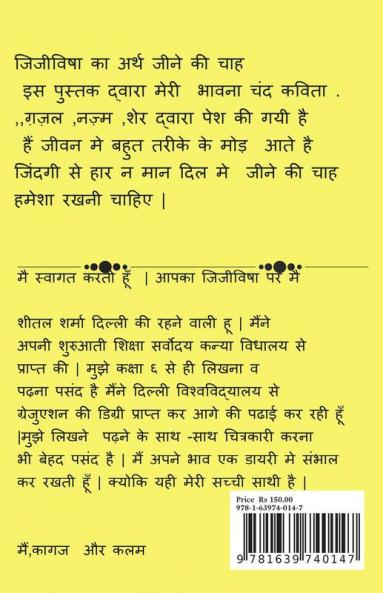 जिजीविषा का अर्थ जीने की चाह
इस पुस्तक द्वारा मेरी भावना चंद कविता .
,,ग़ज़ल ,नज़्म ,शेर द्वारा पेश की गयी है
हैं जीवन मे बहुत तरीके के मोड़ आते है
जिंदगी से हार न मान दिल मे जीने की चाह
हमेशा रखनी चाहिए |
मै स्वागत करती हूँ | आपका जिजीविषा पर मैं
शीतल शर्मा दिल्ली की रहने वाली हू | मैंने
अपनी शुरुआती शिक्षा सर्वोदय कन्या विधालय से
प्राप्त की | मुझे कक्षा ६ से ही लिखना व
पढ़ना पसंद है मैंने दिल्ली विश्वविद्यालय से
ग्रेजुएशन की डिग्री प्राप्त कर आगे की पढाई कर रही हूँ
|मुझे लिखने पढ़ने के साथ -साथ चित्रकारी करना
भी बेहद पसंद है | मैं अपने भाव एक डायरी मे संभाल
कर रखती हूँ | क्योकि यही मेरी सच्ची साथी है |
मैं,कागज और कलम
Price Rs 150.00
978-1-63974-014-7
9 781639 740147